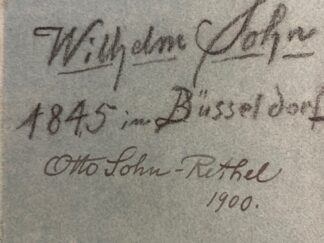 Wilhelm Sohn
1845 in Büsseldorf
Otto Sohn-Rethel
1900.